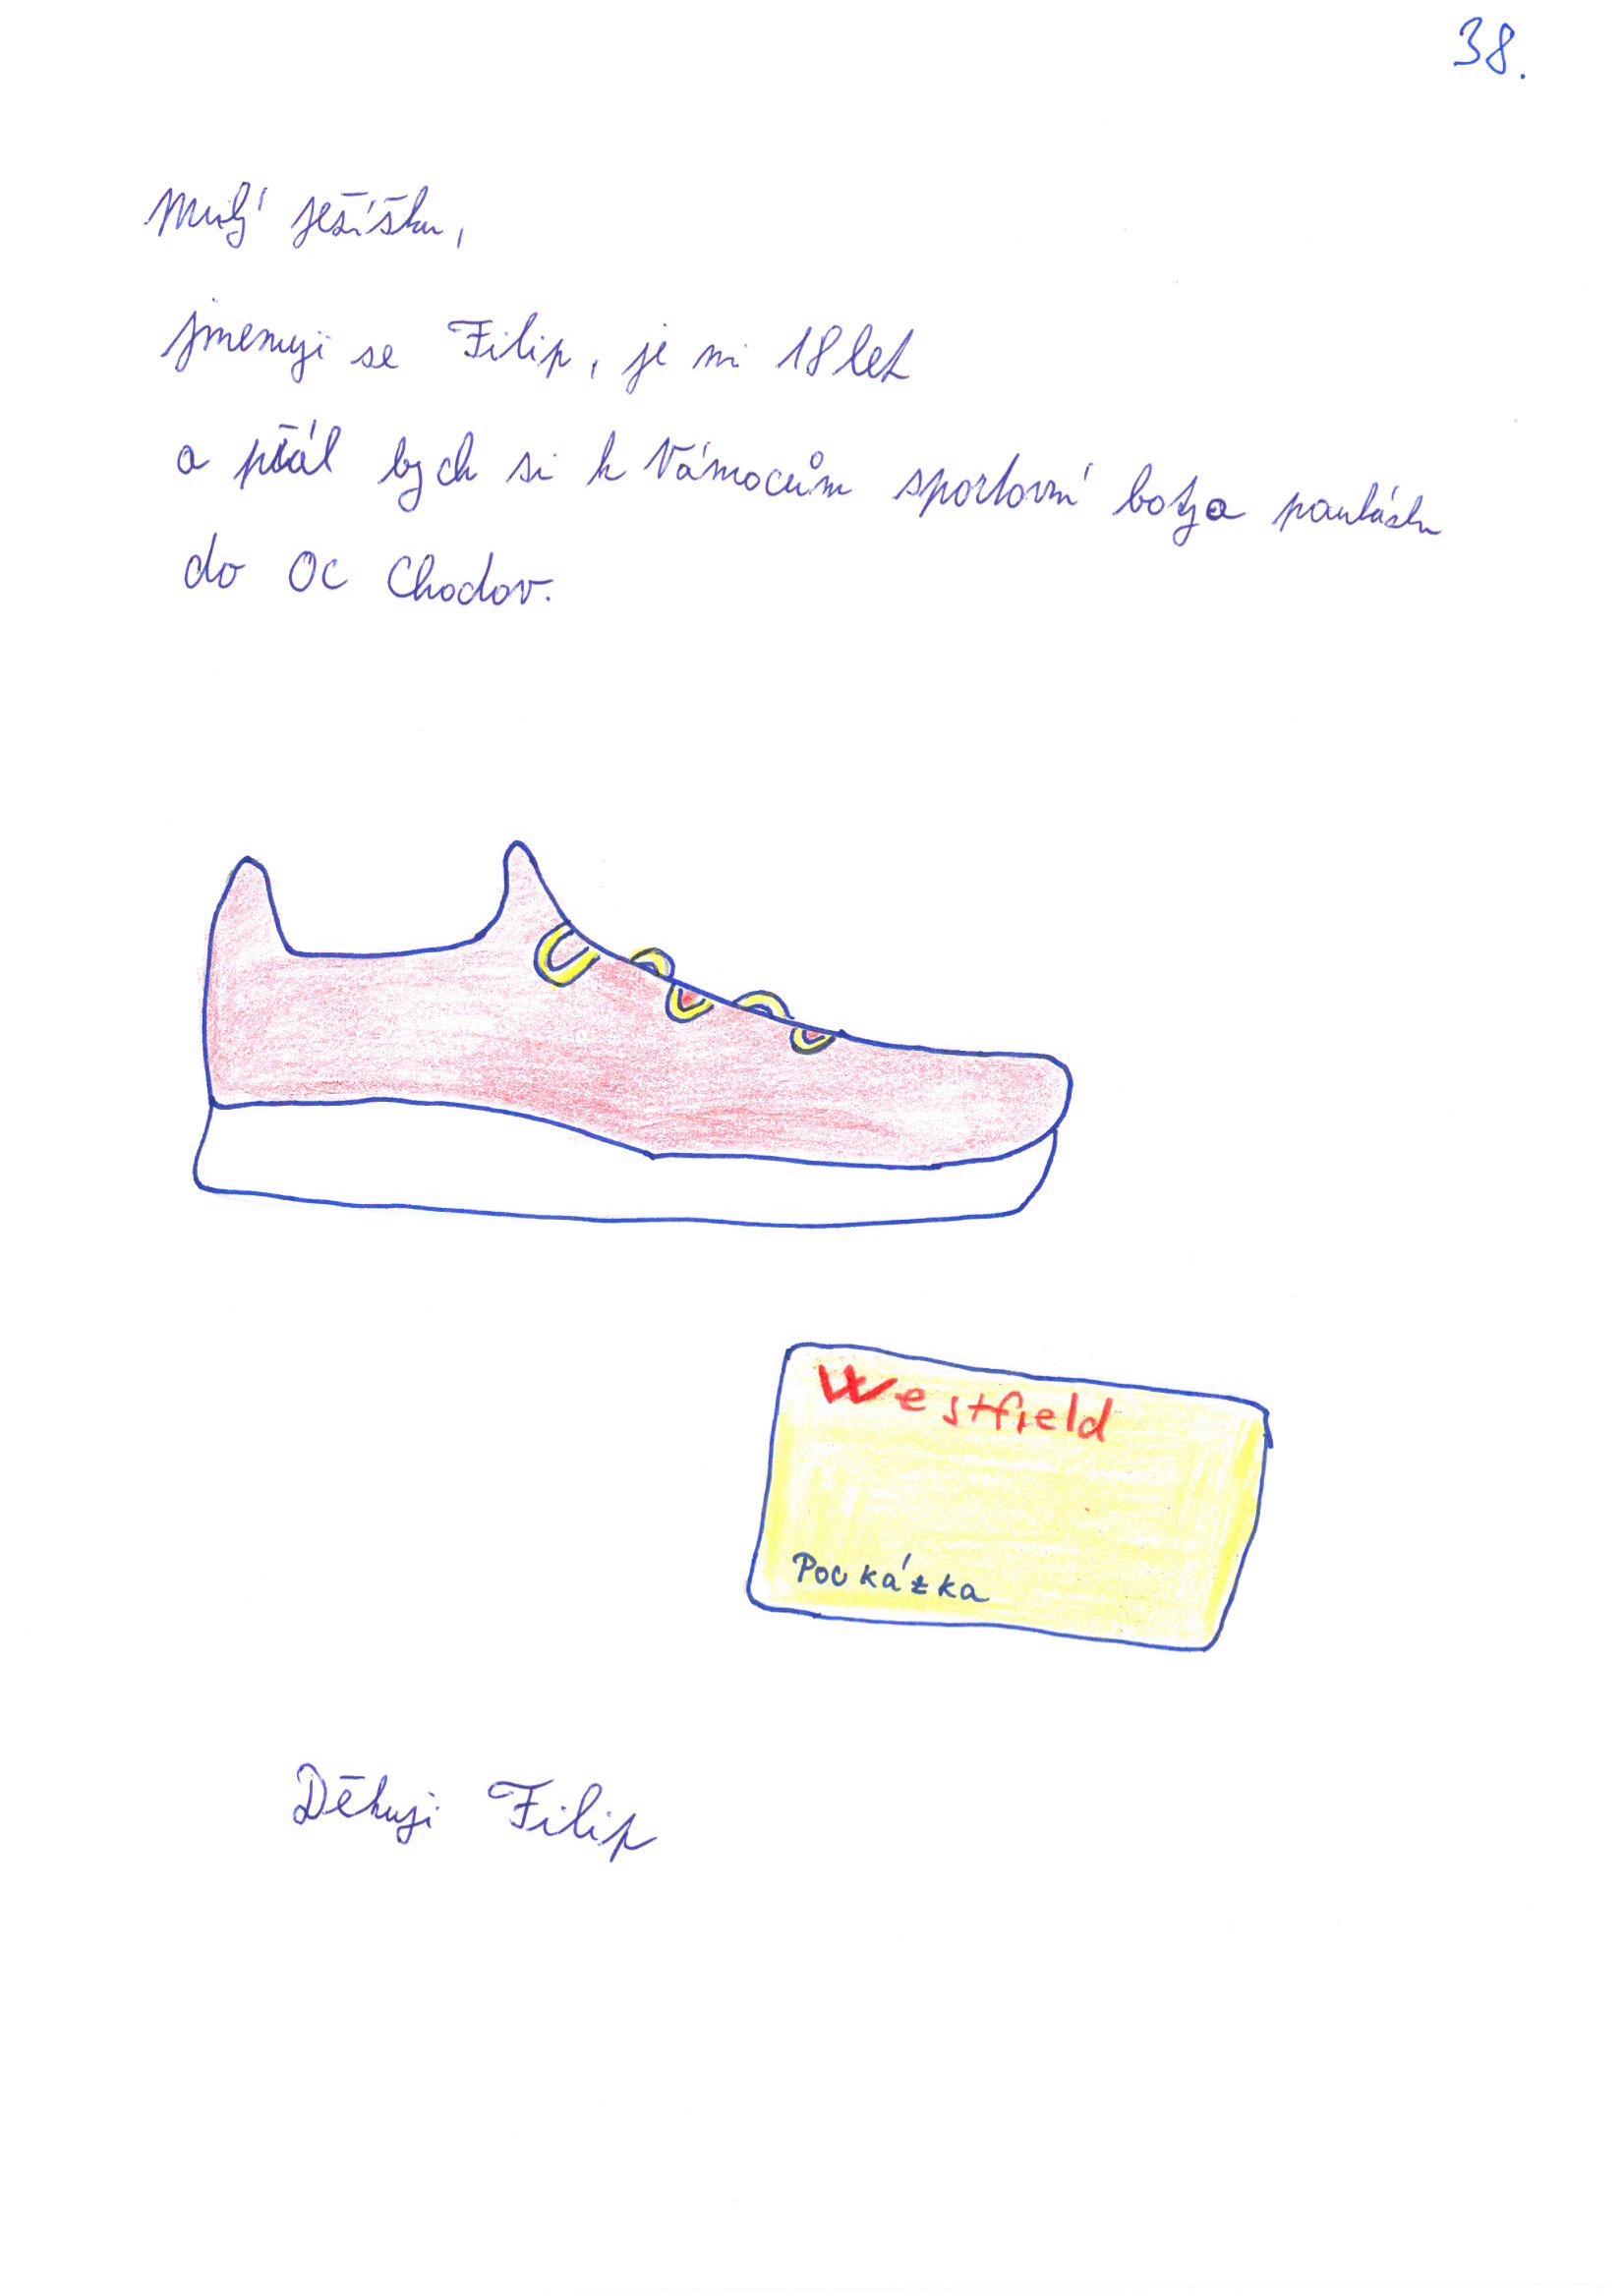 38.
Milý ježíšku,
jmenuji se Filip, je mi 18 let
a přál bych si k Vánocům sportovní boty a poukázku
do OC Chodov.
Westfield
Poukázka
Děkuji Filip